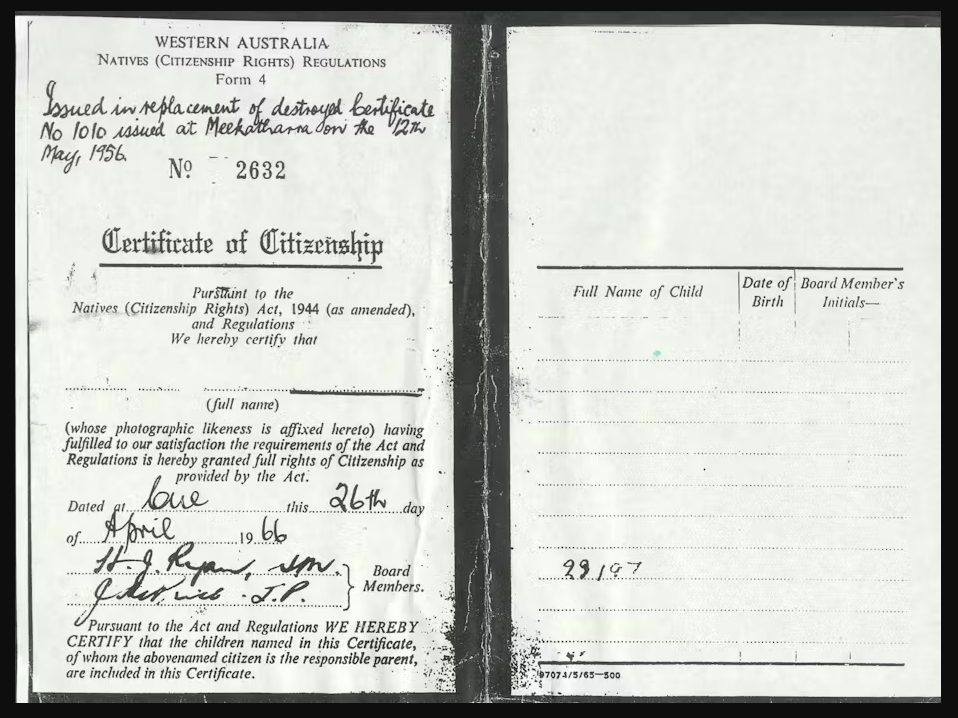 WESTERN AUSTRALIA
NATIVES (CITIZENSHIP RIGHTS) REGULATIONS
Form 4
Issued in replacement of destroyed Certificate
No 1010 issued at Meekatharra on the 12th
May, 1956.
No 2632
Certificate of Citizenship
Pursuant to the
Natives (Citizenship Rights) Act, 1944 (as amended),
and Regulations
We hereby certify that
(full name)
(whose photographic likeness is affixed hereto) having
fulfilled to our satisfaction the requirements of the Act and
Regulations is hereby granted full rights of Citizenship as
provided by the Act.
Dated at Cue this 26th day
of April 19 66
H. J. Ryan, SM. Board
J.P. Members.
Pursuant to the Act and Regulations WE HEREBY
CERTIFY that the children named in this Certificate,
of whom the abovenamed citizen is the responsible parent,
are included in this Certificate.
Full Name of Child
Date of
Birth
Board Member's
Initials—
97074/5/65—500